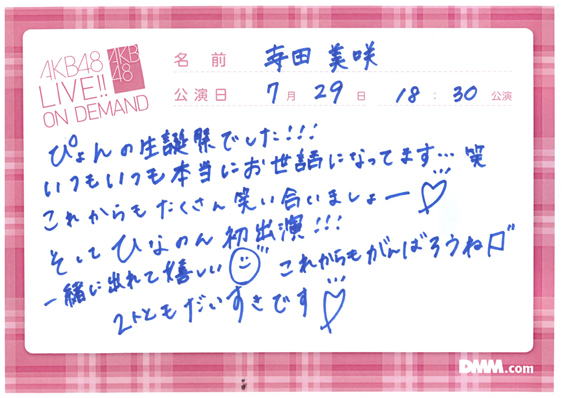 AKB48
LIVE!!
ON DEMAND
AKB
48
名前 寺田 美咲
公演日 7月 29日 18:30 公演
ぴょんの生誕祭でした!!!
いつもいつも本当にお世話になってます…笑
これからもたくさん笑い合いましょー♡
そして ひなのん 初出演!!!
一緒に出れて嬉しい これからもがんばろうね
2人ともだいすきです♡
DMM.com